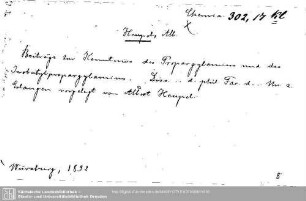 Chemica 302, 17
Hempel, Alb.
Beiträge zur Kenntniss des Propargylamins und des
Isobutylpropargylamins. Diss. d. phil. Fac. d. Un. z.
Erlangen vorgelegt von Albert Hempel.
Nürnberg, 1892
8
Sächsische Landesbibliothek -
Staats- und Universitätsbibliothek Dresden